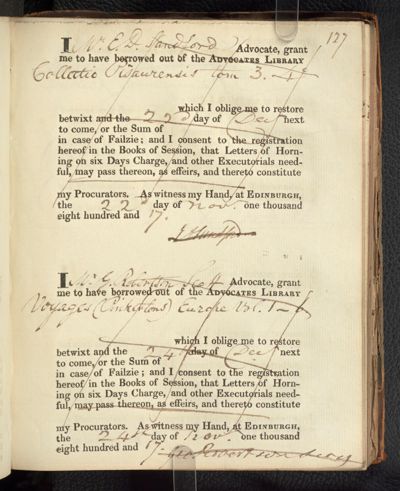 127
I Mr. E. D. Sandford Advocate, grant
me to have borrowed out of the ADVOCATES LIBRARY
Collectio Pisaurensis tom 3.
which I oblige me to restore
betwixt and the 22d day of Decr next
to come, or the Sum of
in case of Failzie; and I consent to the registration
hereof in the Books of Session, that Letters of Horn-
ing on six Days Charge, and other Executorials need-
ful, may pass thereon, as effeirs, and thereto constitute
my Procurators. As witness my Hand, at EDINBURGH,
the 22d day of Nov. one thousand
eight hundred and 17.
I Mr. G. Robertson Scott Advocate, grant
me to have borrowed out of the ADVOCATES LIBRARY
Voyages (Pinkertons) Europe vol. 1
which I oblige me to restore
betwixt and the 24th day of Decr next
to come, or the Sum of
in case of Failzie; and I consent to the registration
hereof in the Books of Session, that Letters of Horn-
ing on six Days Charge, and other Executorials need-
ful, may pass thereon, as effeirs, and thereto constitute
my Procurators. As witness my Hand, at EDINBURGH,
the 24th day of Nov. one thousand
eight hundred and 17 Geo Robertson Scott